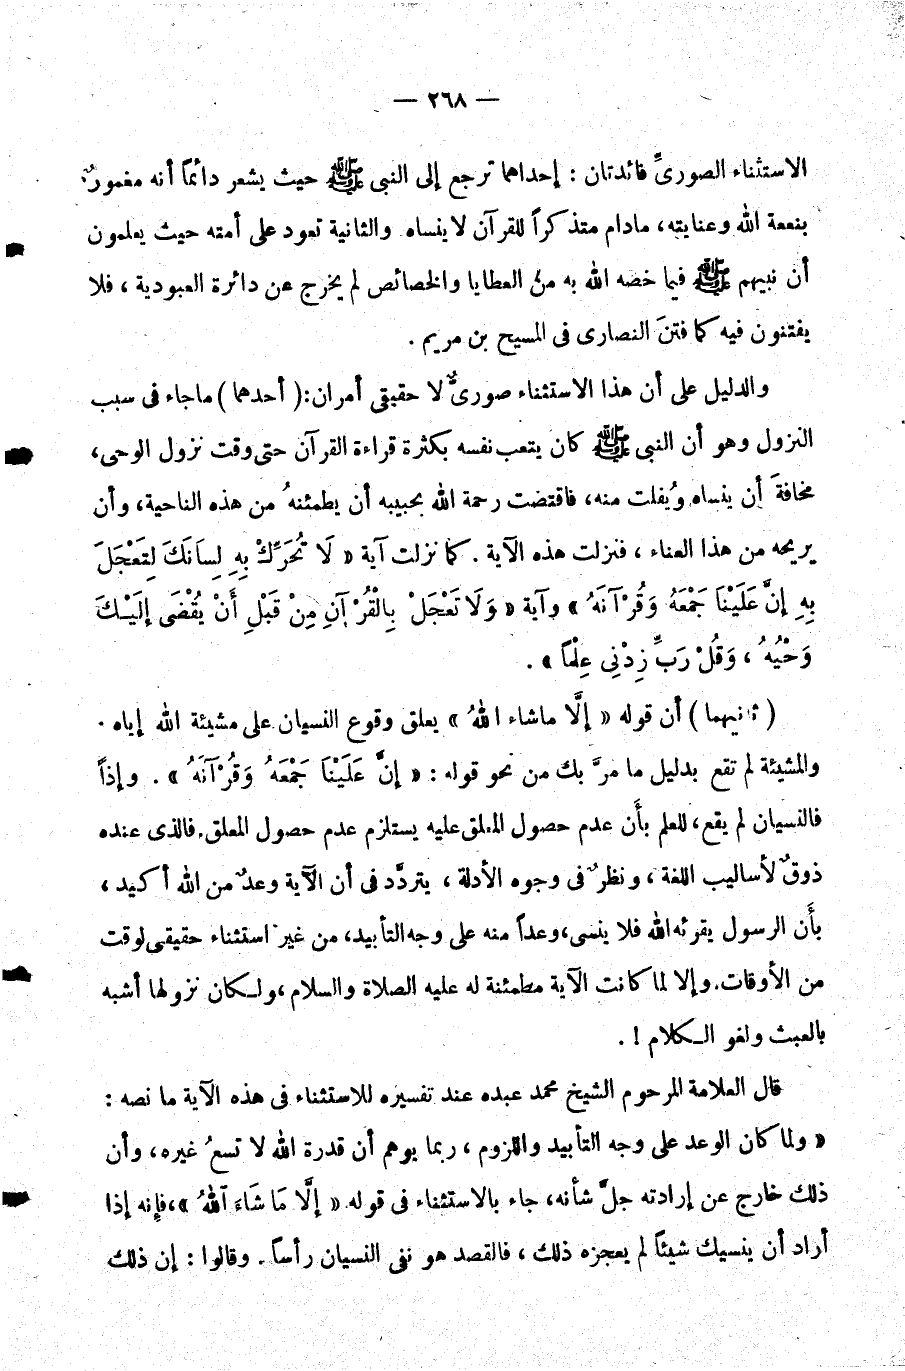 — ٢٦٨ —
الاستثناء الصورىِّ فائدتان : إحداهما ترجع إلى النبى ﷺ حيث يشعر دائمًا أنه مغمورٌ
بنعمة الله وعنايته، مادام متذكراً للقرآن لاينساه. والثانية تعود على أمته حيث يعلمون
أن نبيهم ﷺ فيما خصه الله به من العطايا والخصائص لم يخرج عن دائرة العبودية ، فلا
يفتنون فيه كما فتنَ النصارى فى المسيح بن مريم .
والدليل على أن هذا الاستثناء صورىٌّ لا حقيقي أمران:( أحدهما ) ماجاء فى سبب
النزول وهو أن النبى ﷺ كان يتعب نفسه بكثرة قراءة القرآن حتى وقت نزول الوحى،
مخافةَ أن ينساه ويُفلت منه، فاقتضت رحمة الله بحبيبه أن يطمئنهُ من هذه الناحية، وأن
يريحه من هذا العناء ، فنزلت هذه الآية . كما نزلت آية « لَا تُحَرِّكْ بِهِ لِسَانَكَ لِتَعْجَلَ
بِهِ إِنَّ عَلَيْنَا جَمْعَهُ وَقُرْآنَهُ » وآية « وَلَا تَعْجَلْ بِالْقُرْآنِ مِنْ قَبْلِ أَنْ يُقْضَى إِلَيْـكَ
وَحْيُهُ ، وَقُلْ رَبِّ زِدْنِى عِلْمًا » .
( ثانيهما ) أن قوله « إِلَّا ماشاء اللهُ » يعلق وقوع النسيان على مشيئة الله إياه .
والمشيئة لم تقع بدليل ما مرَّ بك من نحو قوله : « إِنَّ عَلَيْنَا جَمْعَهُ وَقُرْآنَهُ » . وإذاً
فالنسيان لم يقع، للعلم بأن عدم حصول المعلق عليه يستلزم عدم حصول المعلق. فالذى عنده
ذوقٌ لأساليب اللغة ، ونظرٌ فى وجوه الأدلة ، يتردَّد فى أن الآية وعدٌ من الله أكيد ،
بأن الرسول يقرئه الله فلا ينسى، وعداً منه على وجه التأبيد، من غير استثناء حقيقى لوقت
من الأوقات. وإلا لما كانت الآية مطمئنة له عليه الصلاة والسلام ، ولـكان نزولها أشبه
بالعبث ولغو الـكلام ! .
قال العلامة المرحوم الشيخ محمد عبده عند تفسيره للاستثناء فى هذه الآية ما نصه :
« ولما كان الوعد على وجه التأبيد واللزوم ، ربما يوهم أن قدرة الله لا تسعُ غيره، وأن
ذلك خارج عن إرادته جلَّ شأنه، جاء بالاستثناء فى قوله « إِلَّا مَا شَاءَ اللهُ »، فإنه إذا
أراد أن ينسيك شيئاً لم يعجزه ذلك ، فالقصد هو نفى النسيان رأساً . وقالوا : إن ذلك